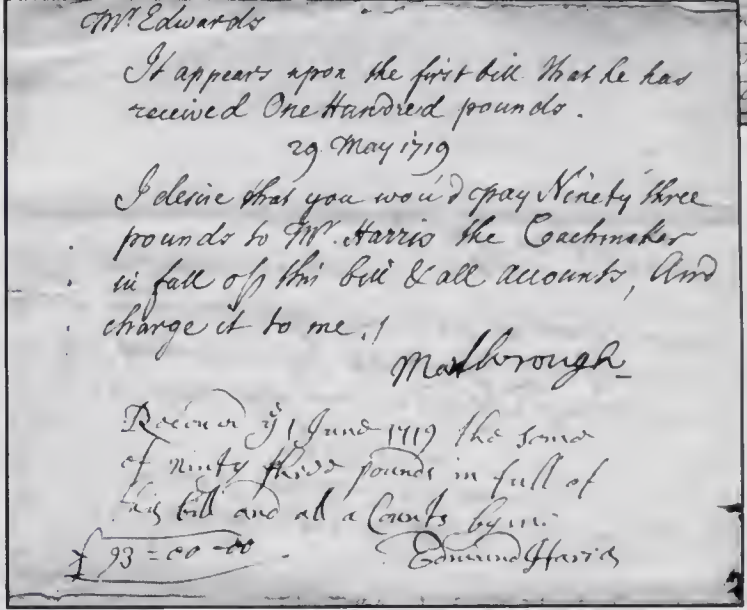 Mr. Edwards
It appears upon the first bill that he has
received One Hundred pounds.
29 May 1719
I desire that you wou'd pay Ninety three
pounds to Mr. Harris the Coachmaker
in full off this bill & all accounts, And
charge it to me.
Marlbrough
Receved ye 1 June 1719 the some
of ninty three pounds in full of
this bill and all a Counts by me
£ 93=00=00 Edmund Haris